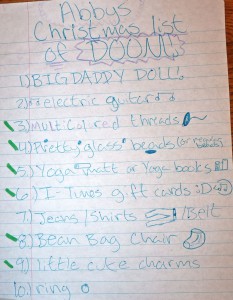 Abbys
Christmas list
of DOOM!
1) BIG DADDY DOLL!
2) electric guitar
3) Multi Colored threads
4) Pretty glass beads (or
5) Yoga matt or Yoga books
6) I-Tunes gift cards :D
7) Jeans/Shirts /Belt
8) Bean Bag Chair
9) little cute charms
10.) ring